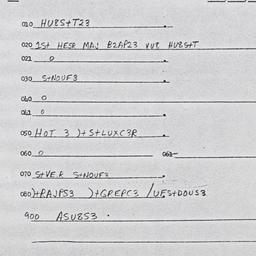 010 HUBS+T23
020 1St HESR MAJ B2AP23 VUB HUBS+T
021 0
030 S+NOUF3
040 0
041 0
050 HOT 3 )+S+LUXC3R
060 0 061
070 S+VE.R S+NOUF3
080 )+RAJPS3 )+GREPC3 /UFS+DOUS3
900 ASUBS3 .